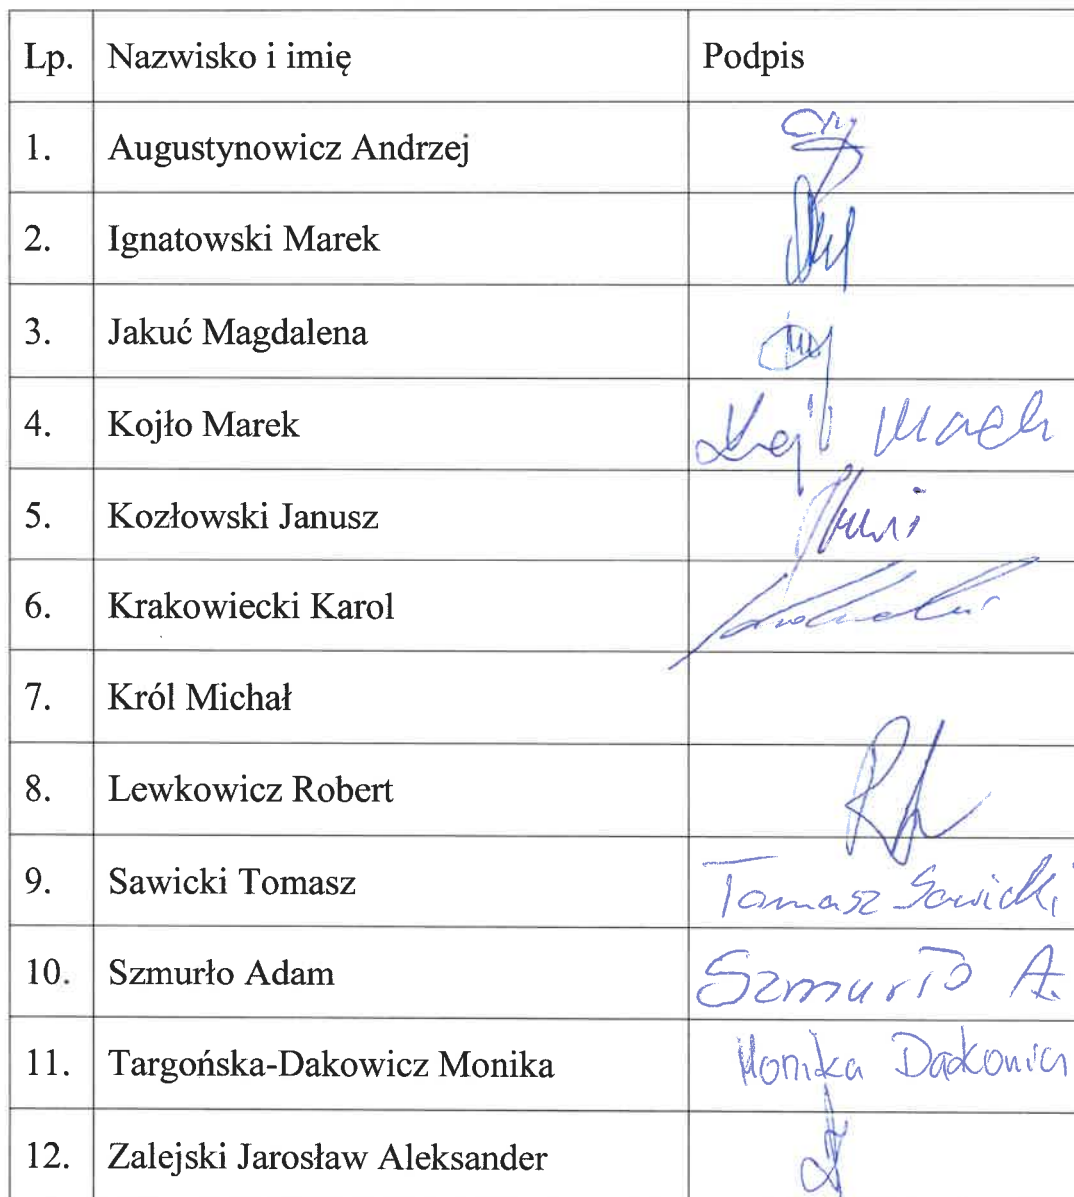 Lp. Nazwisko i imię Podpis
1. Augustynowicz Andrzej
2. Ignatowski Marek
3. Jakuć Magdalena
4. Kojło Marek
5. Kozłowski Janusz
6. Krakowiecki Karol
7. Król Michał
8. Lewkowicz Robert
9. Sawicki Tomasz Tomasz Sawicki
10. Szmurło Adam Szmurło A.
11. Targońska-Dakowicz Monika Monika Dakowicz
12. Zalejski Jarosław Aleksander